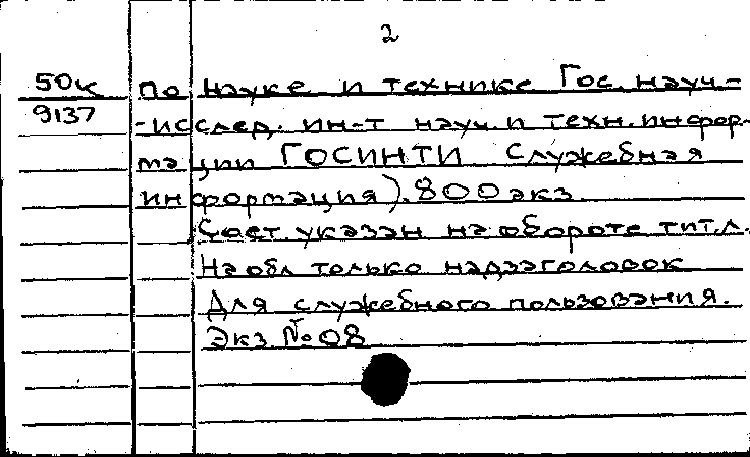 2
50к по науке и технике Гос. науч-
9137 -исслед. ин-т науч. и техн. информ-
мации ГОСИНТИ Служебная
информация). 800 экз.
Сост. указан на обороте тит.л.
На обл только надзаголовок
Для служебного пользования.
Экз. № 08